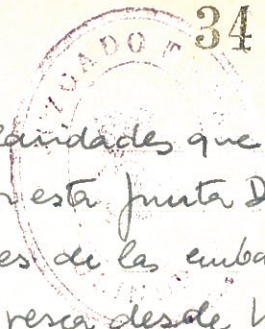 34
ADO
aridades que
esta Junta D
es de las emba
resca desde V